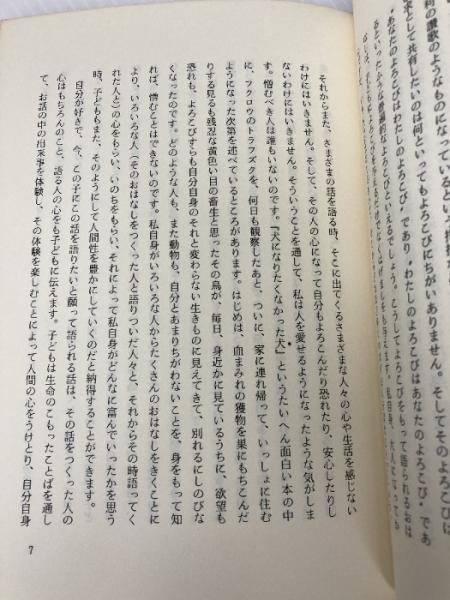 利の讃歌のようなものになっているという指摘
求として共有したいのは何といってもよろこびにちがいありません。そしてそのよろこび
“あなたのよろこびはわたしのよろこび”であり“わたしのよろこびはあなたのよろこび”であ
るといったふうな普遍的なよろこびといえるでしょう。こうしてよろこびをもって語られるおは
それからまた、さまざまの話を語る時、そこに出てくるさまざまな人々の心や生活を感じない
わけにはいきません。そして、その人の心になって自分もよろこんだり恐れたり、安心したりし
ないわけにはいきません。そういうことを通して、私は人を愛せるようになったような気がしま
す。憎むべき人は誰もいないのです。『犬になりたくなかった犬』というたいへん面白い本の中
に、フクロウのトラフズクを、何日も観察したあと、ついに、家に連れ帰って、いっしょに住む
ようになった次第を述べているところがあります。はじめは、血まみれの獲物を巣にもちこんだ
りする見るも残忍な黄色い目の畜生と思ったその鳥が、毎日、身近かに見ているうちに、欲望も
恐れも、よろこびすらも自分自身のそれと変わらない生きものに見えてきて、別れるにしのびな
くなったのです。どのような人も、また動物も、自分とあまりちがわないことを、身をもって知
れば、憎むことはできないのです。私自身がいろいろな人からたくさんのおはなしをきくことに
より、いろいろな人（そのおはなしをつくった人と語りついだ人々と、それからその時語ってく
れた人と）の心をもらい、いのちをもらい、それによって私自身がどんなに富んでいったかを思う
時、子どももまた、そのようにして人間性を豊かにしていくのだと納得することができます。
自分が好きで、今、この子にこの話を語りたいと願って語られる話は、その話をつくった人の
心はもちろんのこと、語る人の心をも子どもに伝えます。子どもは生命のこもったことばを通し
て、お話の中の出来事を体験し、その体験を楽しむことによって人間の心をうけとり、自分自身
7